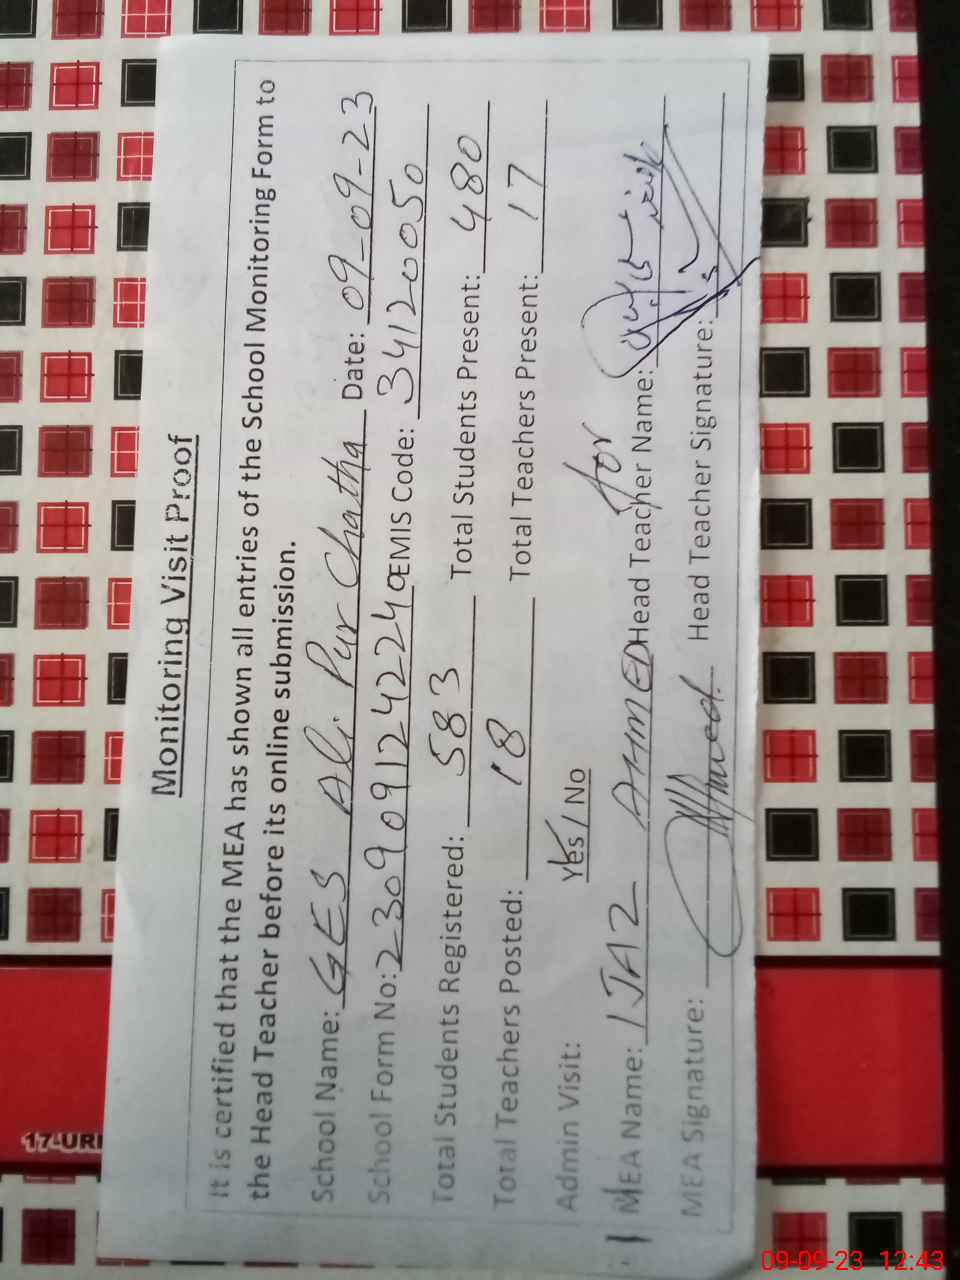 Monitoring Visit Proof
It is certified that the MEA has shown all entries of the School Monitoring Form to
the Head Teacher before its online submission.
School Name: GES Ali Pur Chatha Date: 09-09-23
School Form No: 2309091242240 EMIS Code: 34120050
Total Students Registered: 583 Total Students Present: 480
Total Teachers Posted: 18 Total Teachers Present: 17
Admin Visit: Yes / No
MEA Name: IJAZ AHMED Head Teacher Name: for
MEA Signature: Head Teacher Signature:
17-UR
09-09-23 12:43